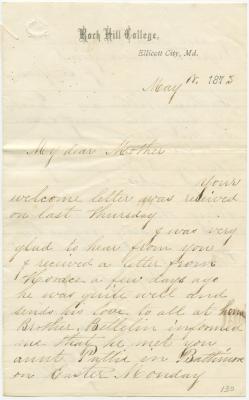 Rock Hill College,
Ellicott City, Md.
May 18, 1873
My dear Mother
Your
welcome letter was received
on last Thursday
I was very
glad to hear from you
I received a letter from
a few days ago
he was quite well and
sends his love to all at home
Brother informed
me that he met you
aunt in Baltimore
on Easter Monday
130